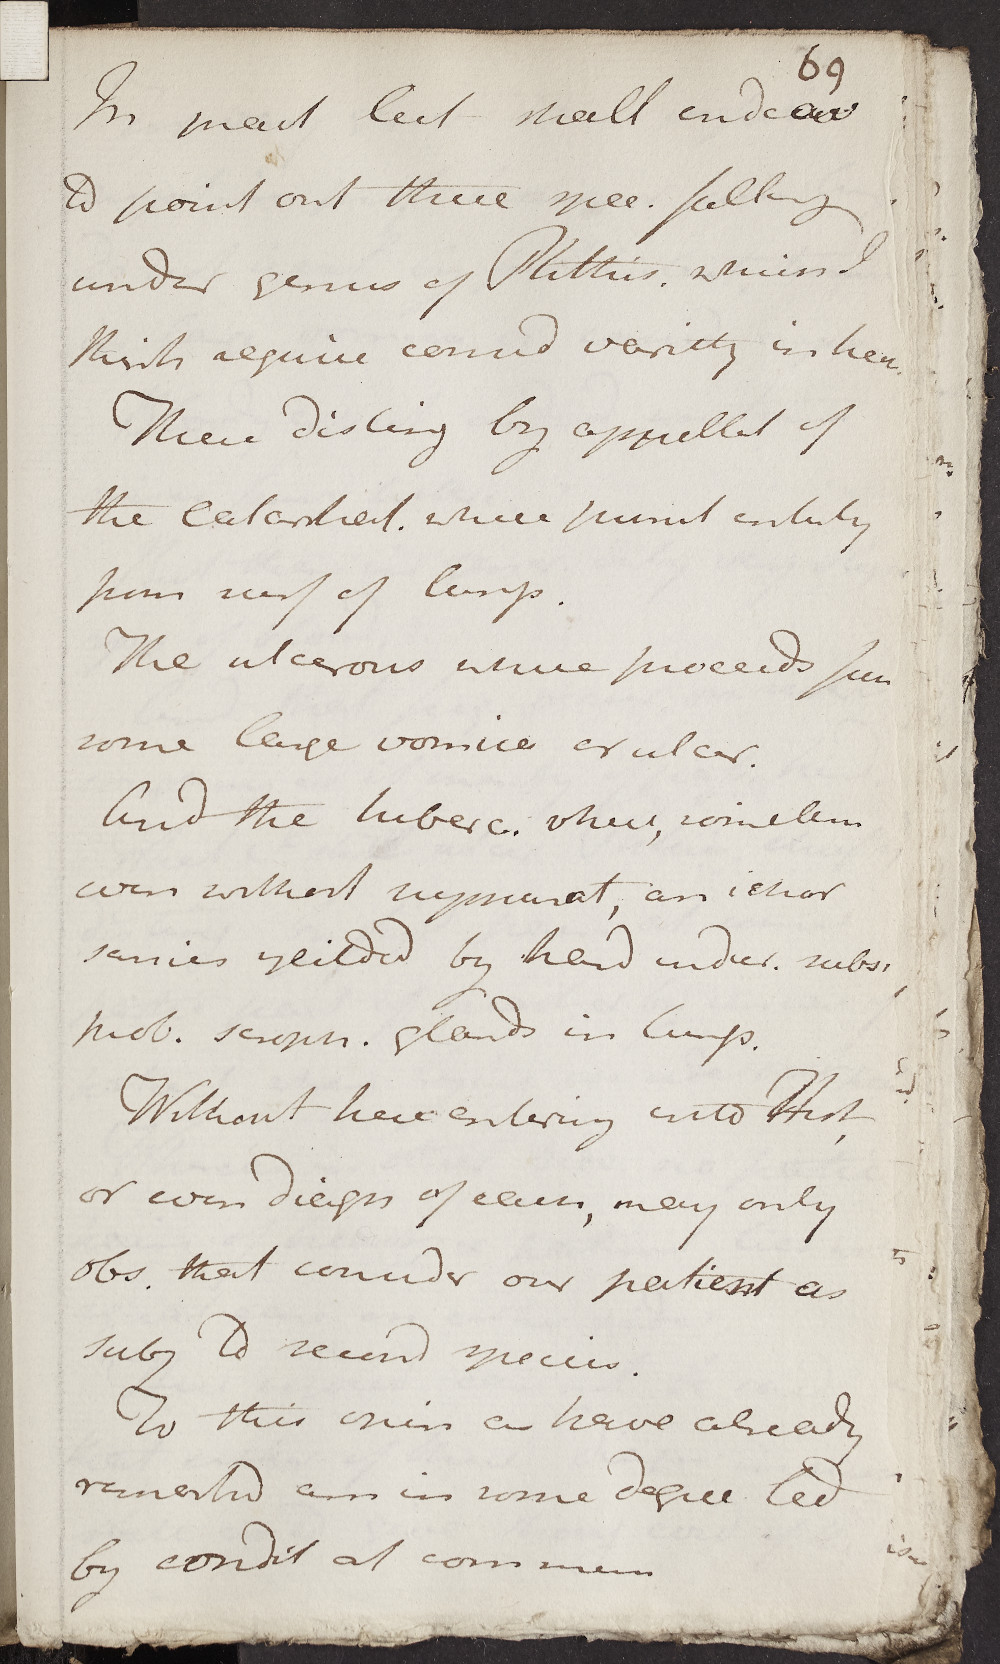 69
In pract lect shall endeav
to point out three spec. falling
under genus of Phthisis. which I
think require consid variety in hea
These disting by appellat of
the catarrhal. where purul entirely
from surf of lungs.
The ulcerous where proceeds from
some large vomica or ulcer.
And the tuberc. where, sometim
even without suppurat, an ichor
sanies yeilded by hard indur. subs.
prob. scroph. glands in lungs.
Without here entering into Hist,
or even diagn of each, may only
obs. that consider our patient as
subj to second species.
To this opin as have already
remarked am in some degree led
by condit at commen